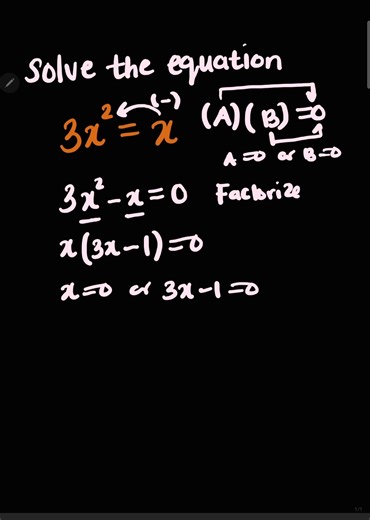 Solve the equation
3x² = x (-) (A)(B)=0
A=0 or B=0
3x² - x = 0 Factorize
x(3x-1)=0
x=0 or 3x-1=0